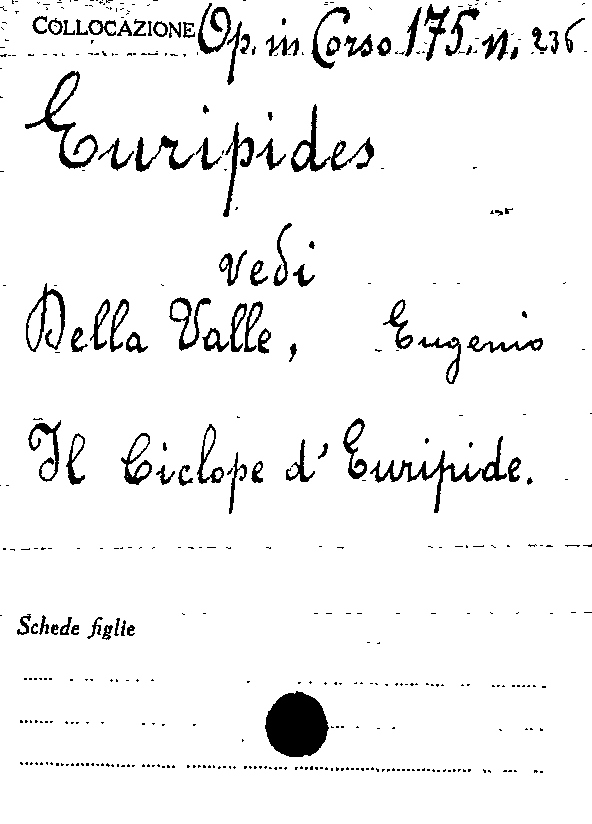 COLLOCAZIONE Op. in Corso 175. n. 236
Euripides
vedi
Della Valle, Eugenio
Il Ciclope d'Euripide.
Schede figlie